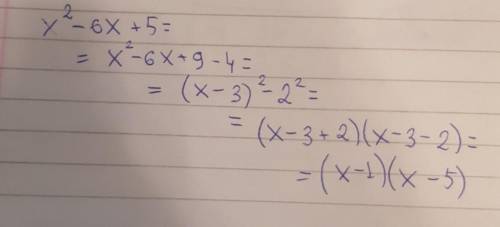 x² - 6x + 5 =
= x² - 6x + 9 - 4 =
= (x - 3)² - 2² =
= (x - 3 + 2)(x - 3 - 2) =
= (x - 1)(x - 5)